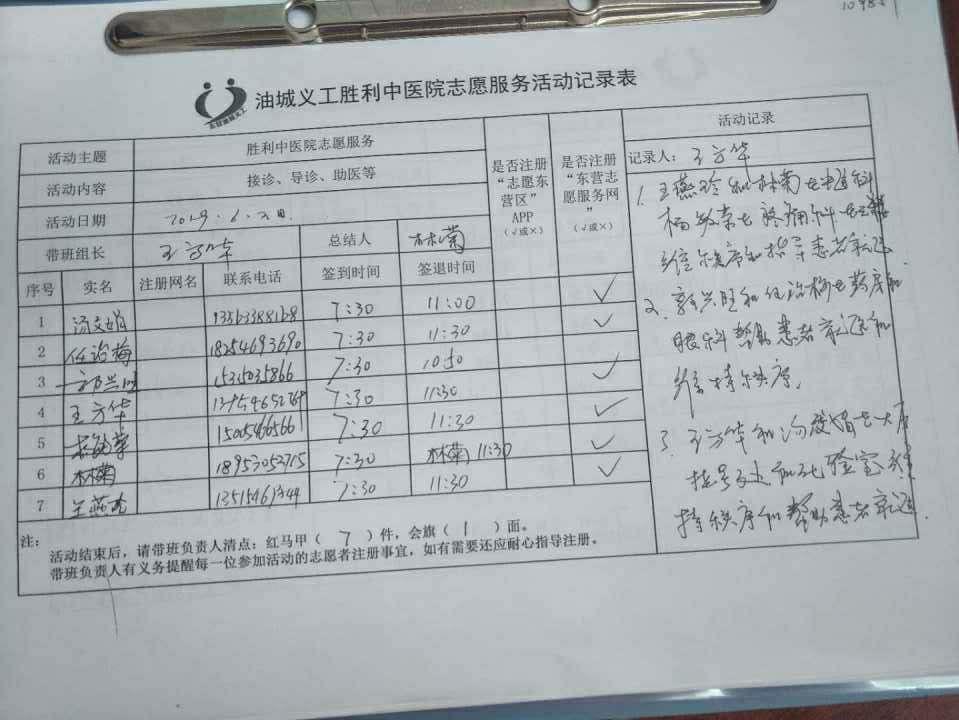 油城义工胜利中医院志愿服务活动记录表
活动主题 胜利中医院志愿服务
活动内容 接诊、导诊、助医等
活动日期 2019.6.2日
带班组长 王方华 总结人 林菊
是否注册“志愿东营区”APP（√或×）
是否注册“东营志愿服务网”（√或×）
活动记录
记录人：王方华
序号 实名 注册网名 联系电话 签到时间 签退时间
1 汤文娟 7:30 11:00 √
2 任治梅 18254693690 7:30 11:30 √
3 郭兴旺 15335035866 7:30 10:50 √
4 王方华 7:30 11:30 √
5 7:30 11:30 √
6 林菊 18953052715 7:30 林菊 11:30 √
7 7:30 11:30
1. 王燕玲和林菊在
维持秩序和指导患者就医
2. 郭兴旺和任治梅在药房和
眼科帮助患者就医和
维持秩序。
3. 王方华和汤文娟在大厅
挂号处和化验室维
持秩序和帮助患者就医.
注：
活动结束后，请带班负责人清点：红马甲（ 7 ）件，会旗（ 1 ）面。
带班负责人有义务提醒每一位参加活动的志愿者注册事宜，如有需要还应耐心指导注册。